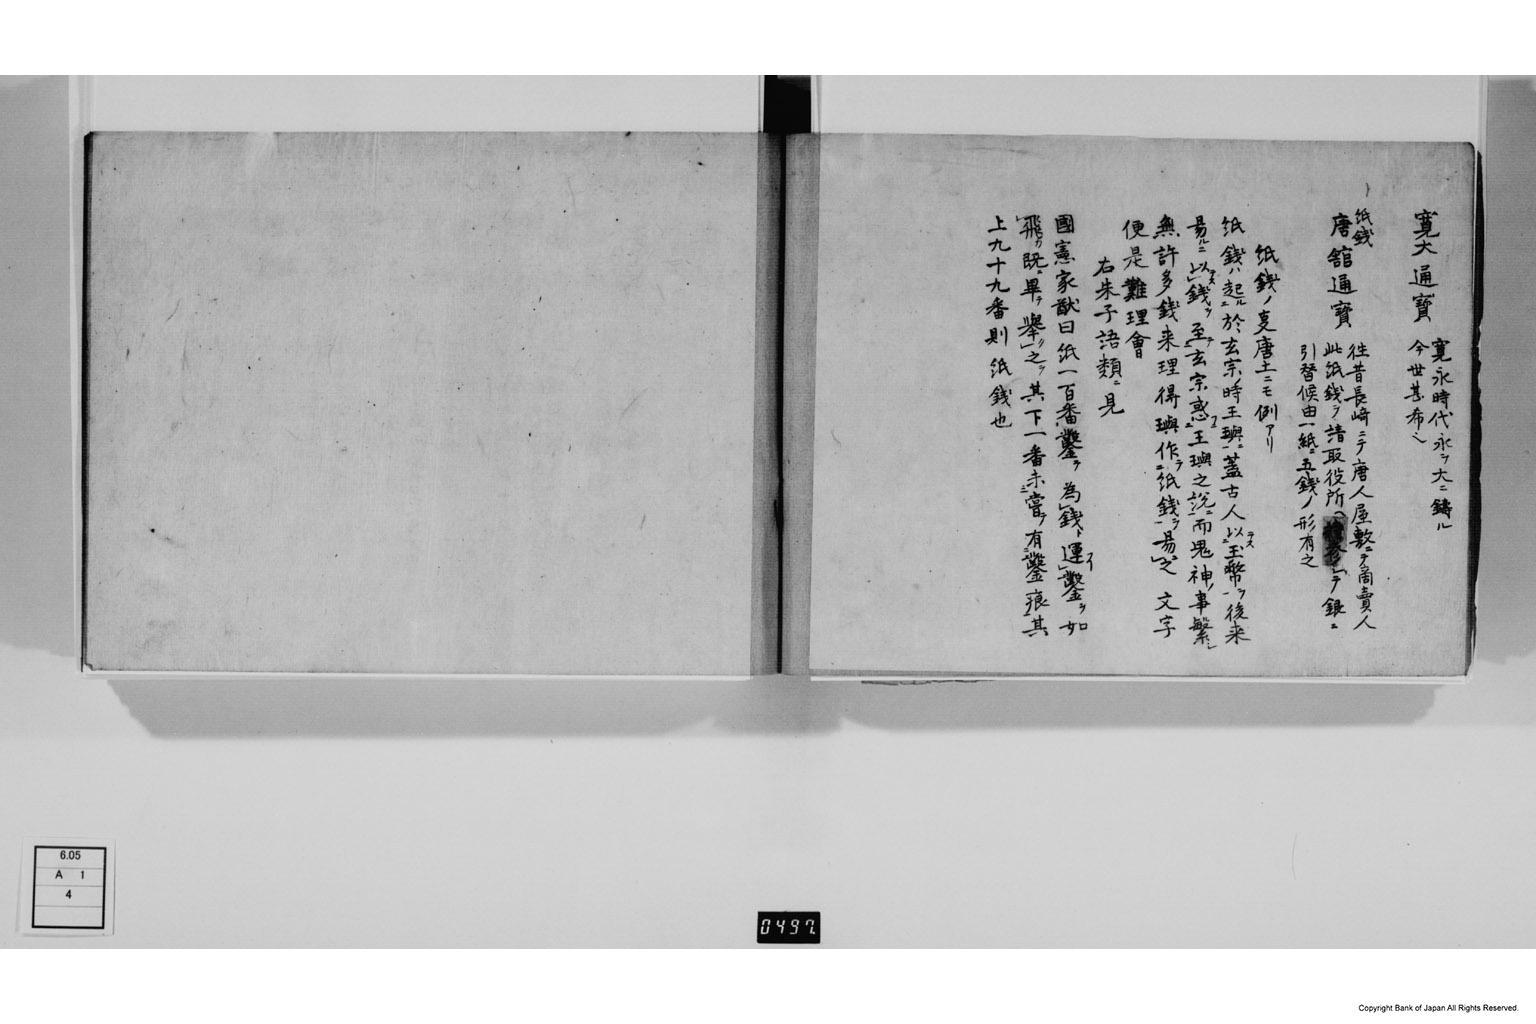 寛大通寳
寛永時代永ヲ大ニ鑄ル
今世甚希シ
紙錢
唐舘通寳
徃昔長崎ニテ唐人屋敷ニテ商賣人
此紙錢ヲ請取役所ヘ テ銀ニ
引替候由一紙ニ五錢ノ形有之
紙錢ノ㕝唐土ニモ例アリ
紙錢ハ起ル於玄宗ノ時王璵ニ蓋古人以テス玉幣ヲ後来
易ルニ以テス錢ヲ至テ玄宗惑ニ王璵之説ニ而鬼神ノ事繁シ
無許多錢来理得璵作テ紙錢ヲ易之文字
便是難理會
右朱子語類ニ見
國憲家猷曰紙一百番鑿ヲ為錢ト運鑿ヲ如
飛カ既ニ畢テ舉之ヲ其下一番未ニ嘗テ有鑿痕其
上九十九番則紙錢也
6.05
A 1
4
0497
Copyright Bank of Japan All Rights Reserved.